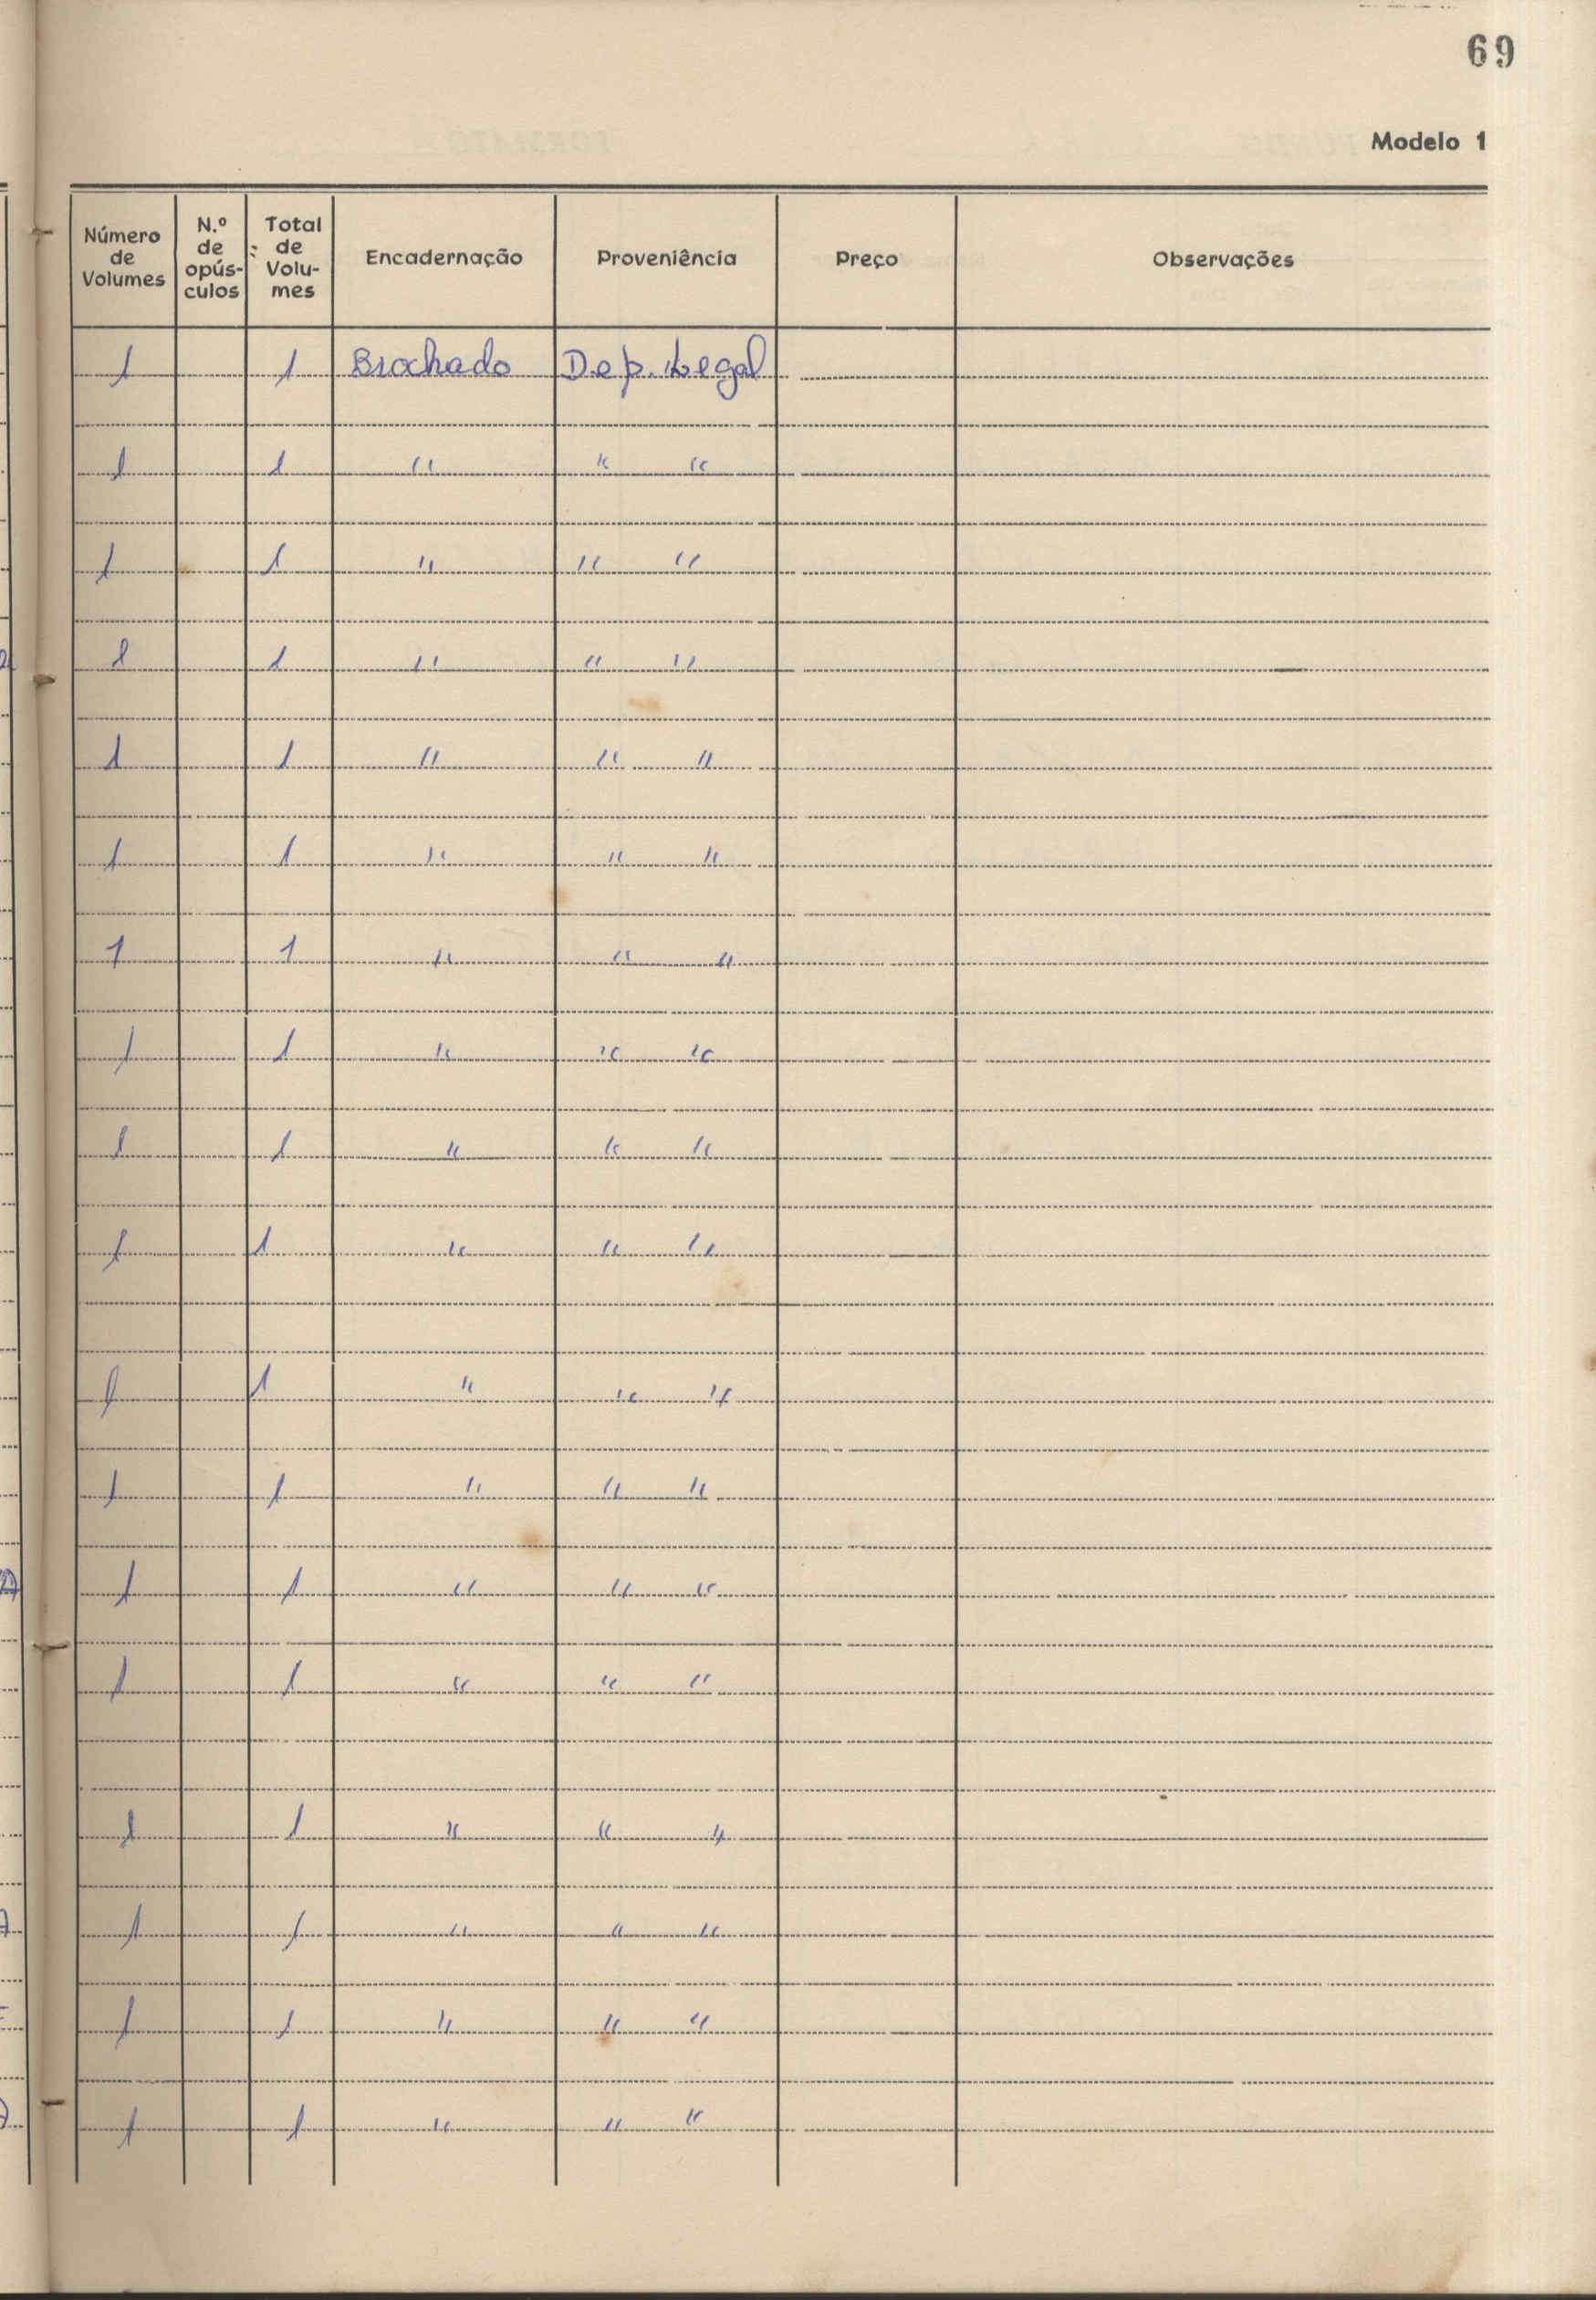 69
Modelo 1
Número de Volumes | N.º de opús-culos | Total de Volu-mes | Encadernação | Proveniência | Preço | Observações
1 | | 1 | Brochado | Dep. Legal
1 | | 1 | " | " "
1 | | 1 | " | " "
1 | | 1 | " | " "
1 | | 1 | " | " "
1 | | 1 | " | " "
1 | | 1 | " | " "
1 | | 1 | " | " "
1 | | 1 | " | " "
1 | | 1 | " | " "
1 | | 1 | " | " "
1 | | 1 | " | " "
1 | | 1 | " | " "
1 | | 1 | " | " "
1 | | 1 | " | " "
1 | | 1 | " | " "
1 | | 1 | " | " "
1 | | 1 | " | " "